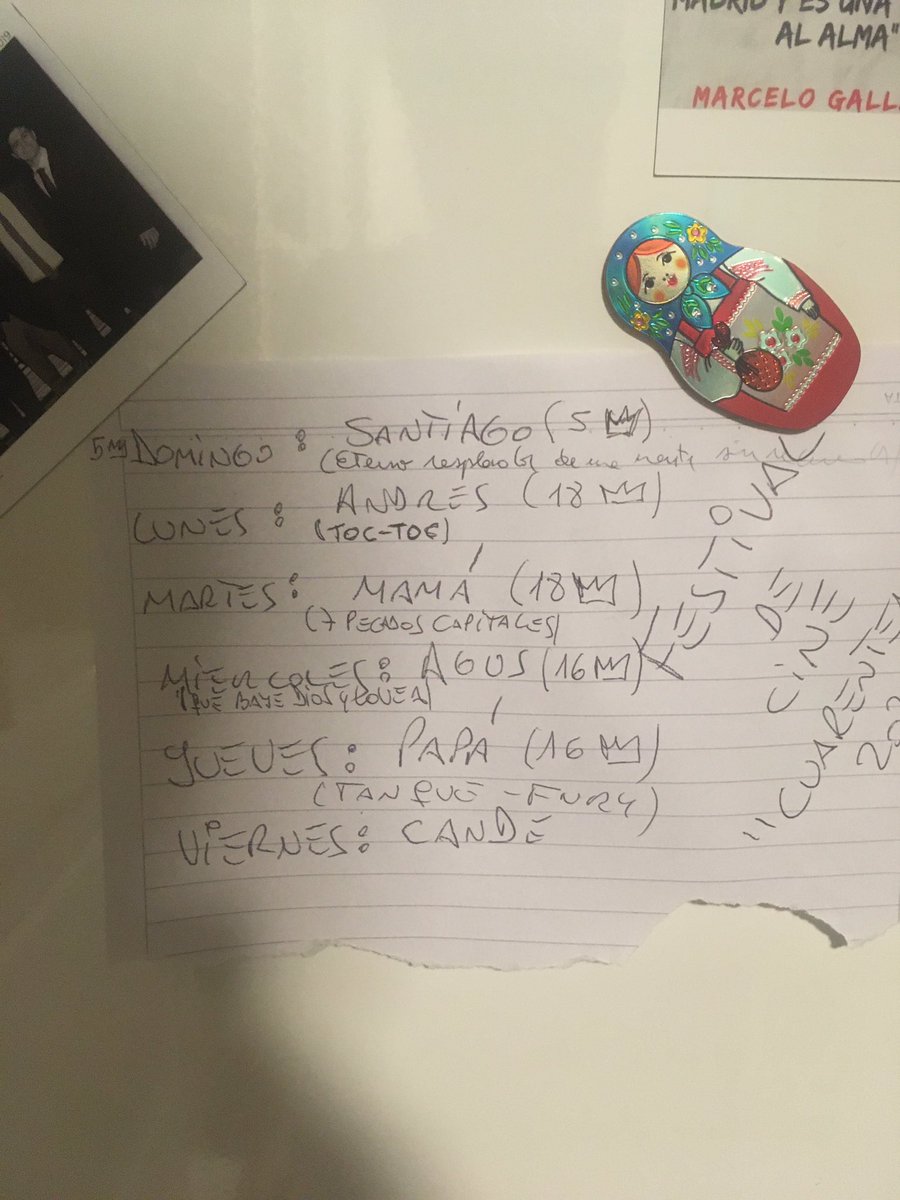 MADRID Y ES UNA
AL ALMA"
MARCELO GALL
DOMINGO: SANTIAGO (5
(Eterno resplandor de una mente sin
LUNES: ANDRES (18
(TOC-TOC)
MARTES: MAMÁ (18
(7 PECADOS CAPITALES)
MIERCOLES: AGUS (16
(QUE BAJE DIOS Y
JUEVES: PAPÁ (16
(TANQUE - FURY)
VIERNES: CANDE
FESTIVAL
DE
CINE
"CUARENTE